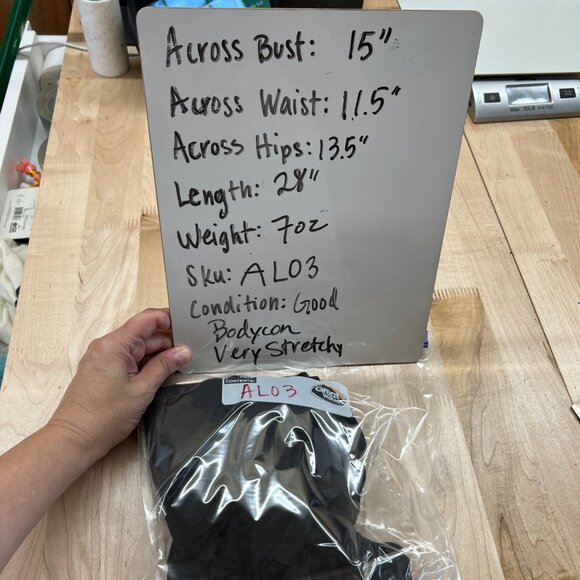 Across Bust: 15"
Across Waist: 11.5"
Across Hips: 13.5"
Length: 28"
Weight: 7oz
Sku: AL03
Condition: Good
Bodycon
Very Stretchy
CONTENTS:
AL03